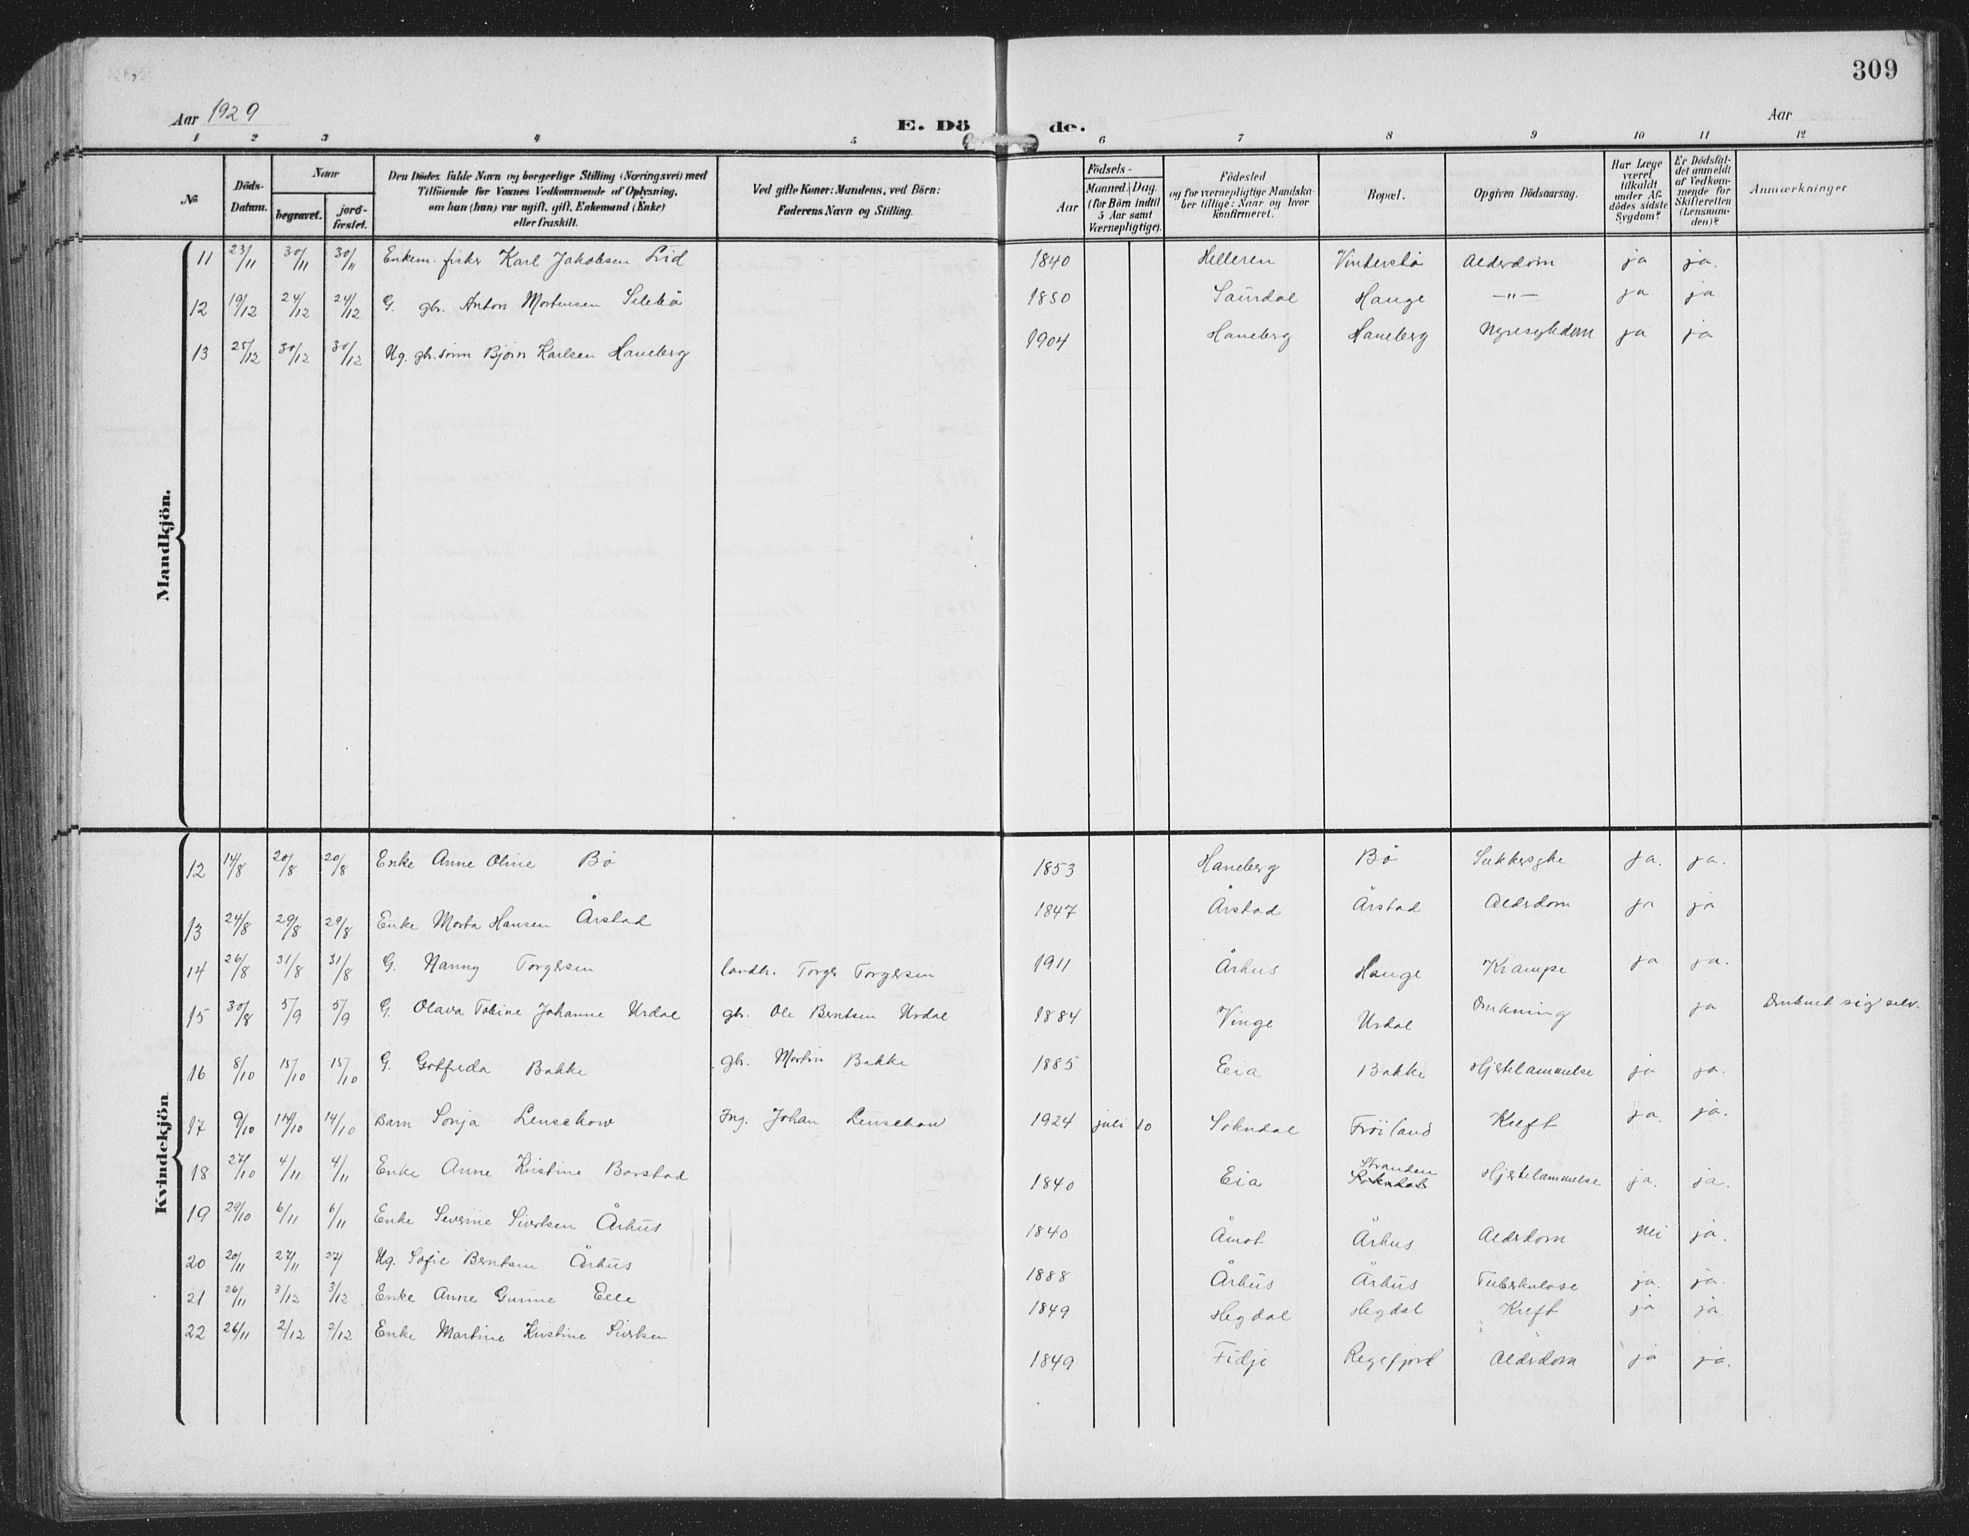 309
Aar 1929 E. Dö de. Aar
1 2 3 4 5 6 7 8 9 10 11 12
No
Döds-Datum.
Naar
begravet.
jord-fæstet.
Den Dödes fulde Navn og borgerlige Stilling (Næringsvei) med
Tilföiende for Voxnes Vedkommende af Oplysning,
om han (hun) var ugift, gift, Enkemand (Enke)
eller fraskilt.
Ved gifte Koner: Mandens, ved Börn:
Faderens Navn og Stilling.
Födsels-
Aar
Maaned. Dag.
(for Börn indtil
5 Aar samt
Værnepligtige).
Födested
og for værnepligtige Mandska-
ber tillige: Naar og hvor
konfirmeret.
Bopæl.
Opgiven Dödsaarsag.
Har Læge
været
tilkaldt
under Af-
dödes sidste
Sygdom?
Er Dödsfal-
det anmeldt
af Vedkom-
mende for
Skifteretten
(Lensman-
den)?
Anmærkninger
Mandkjön.
11 23/11 30/11 30/11 Enkem. fisker Karl Jakobsen Lid 1840 Helleren Vinterstø Alderdom ja ja.
12 19/12 24/12 24/12 G. gbr. Anton Mortensen Slebø 1850 Saurdal Hauge —"— ja ja
13 25/12 30/12 30/12 Ug. gbr.sønn Bjørn Karlsen Haneberg 1904 Haneberg Haneberg Nyresykdom ja ja
Kvindekjön
12 14/8 20/8 20/8 Enke Anne Oline Bø 1853 Haneberg Bø Sukkersyke ja. ja.
13 24/8 29/8 29/8 Enke Marta Hansen Årstad 1847 Årstad Årstad Alderdom ja ja
14 26/8 31/8 31/8 G. Nanny Torgersen landh. Torger Torgersen 1911 Århus Hauge Krampe ja ja.
15 30/8 5/9 5/9 G. Olava Tobine Johanne Urdal gbr. Ole Berntsen Urdal 1884 Vinge Urdal Drukning ja Druknet sig selv.
16 8/10 15/10 15/10 G. Gotfreda Bakke gbr. Martin Bakke 1885 Eia Bakke Hjertelammelse ja ja.
17 9/10 14/10 14/10 Barn Sonja Lenschow Ing. Johan Lenschow 1924 juli 10 Sokndal Frøiland Kreft ja. ja.
18 27/10 4/11 4/11 Enke Anne Kristine Barstad 1840 Eia Stranden Sokndal Hjertelammelse ja. ja.
19 29/10 6/11 6/11 Enke Severine Sivertsen Århus 1840 Åmot Århus Alderdom Nei ja.
20 20/11 27/11 27/ Ug. Sofie Berntsen Århus 1888 Århus Århus Tuberkulose ja. ja.
21 26/11 3/12 3/12 Enke Anne Gurine Eele 1849 Hegdal Hegdal Kreft ja ja.
22 26/11 2/12 2/12 Enke Martine Kristine Sivertsen 1849 Fidje Regefjord Alderdom ja ja.